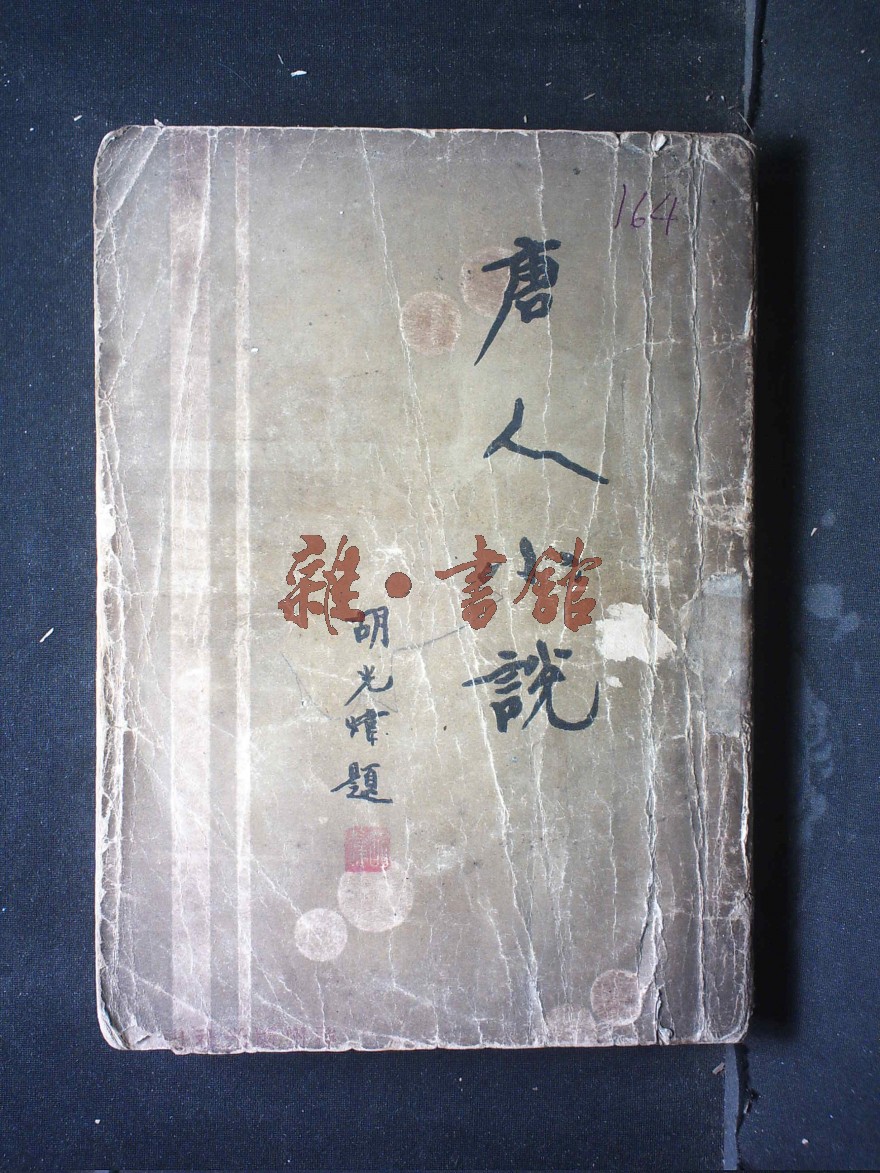 164
唐人小說
胡光煒題
雜·書館